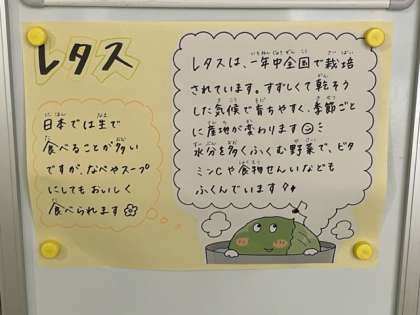 レタス
日本では生で
食べることが多い
ですが、なべやスープ
にしてもおいしく
食べられます
レタスは、一年中全国で栽培
されています。すずしくて乾そう
した気候で育ちやすく、季節ごと
に産地が変わります
水分を多くふくむ野菜で、ビタ
ミンCや食物せんいなども
ふくんでいます